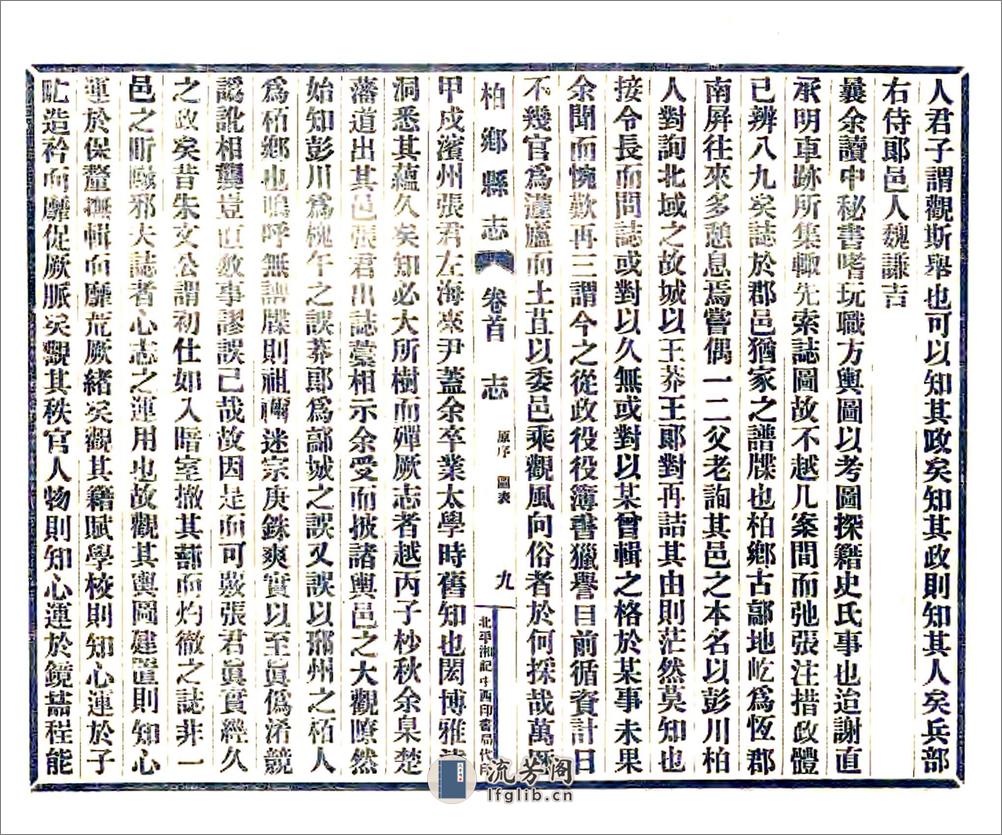 人君子謂觀斯舉也可以知其政矣知其政則知其人矣兵部
右侍郎邑人魏謙吉
曩余讀中秘書嗜玩職方輿圖以考圖探籍史氏事也迨謝直
承明車跡所集輒先索誌圖故不越几案間而弛張注措政體
已辨八九矣誌於郡邑猶家之譜牒也柏鄉古鄗地屹為恆郡
南屏往來多憩息焉嘗偶一二父老詢其邑之本名以彭川柏
人對詢北域之故城以王莽王郞對再詰其由則茫然莫知也
接令長而問誌或對以久無或對以某曾輯之格於某事未果
余聞而惋歎再三謂今之從政役役簿書獵譽目前循資計日
不幾官為蘧廬而土苴以委邑乘觀風问俗者於何採哉萬曆
柏鄉縣志 卷首 志 原序 圖表 九 北平湘記中西印書局代印
甲戍濱州張君左海來尹蓋余卒業太學時舊知也閎博雅
洞悉其蘊久矣知必大所樹而殫厥志者越丙子杪秋余臬楚
藩道出其邑張君出誌藁相示余受而披諸輿邑之大觀瞭然
始知彭川為槐午之誤莽郞為鄗城之誤又誤以邢州之栢人
為栢鄉也嗚呼無譜牒則祖禰迷宗庚銖爽實以至眞偽淆競
譌訛相襲豈直敘事謬誤已哉故因是而可覈張君眞實經久
之政矣昔朱文公謂初仕如入暗室撤其蔀而灼徹之誌非一
邑之昕曦邪夫誌者心志之運用也故觀其輿圖建置則知心
運於保釐撫輯而靡荒厥緒矣觀其籍賦學校則知心運於子
甿造衿而靡促厥脈矣觀其秩官人物則知心運於鏡蓍程能
流芳阁
lfglib.cn